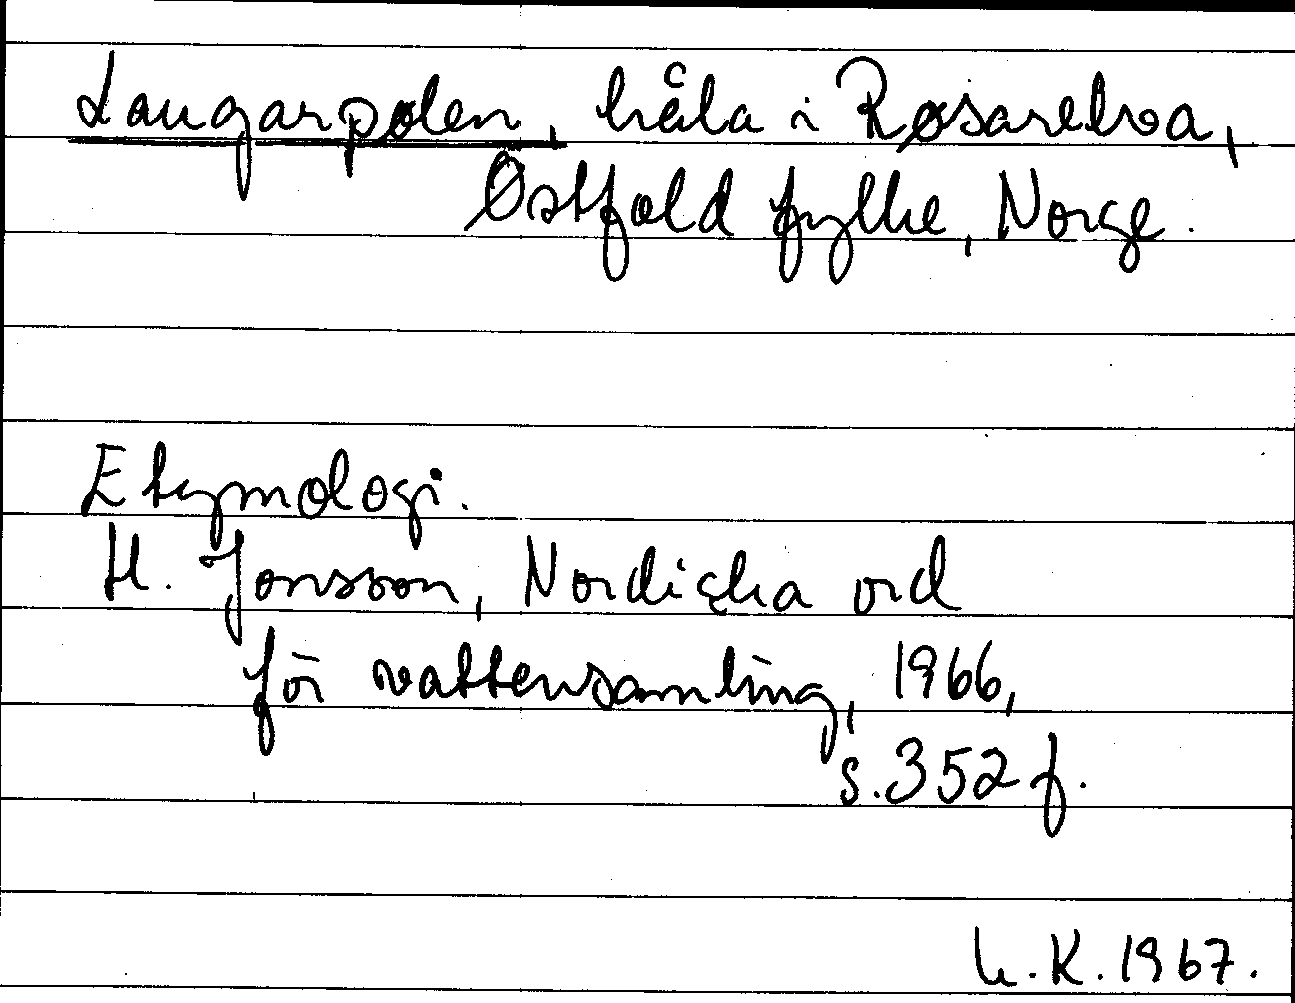 Laugarpølen, håla i Røsarelva,
Östfold fylke, Norge.
Etymologi.
H. Jonsson, Nordiska ord
för vattensamling, 1966,
s. 352 f.
L.K. 1967.